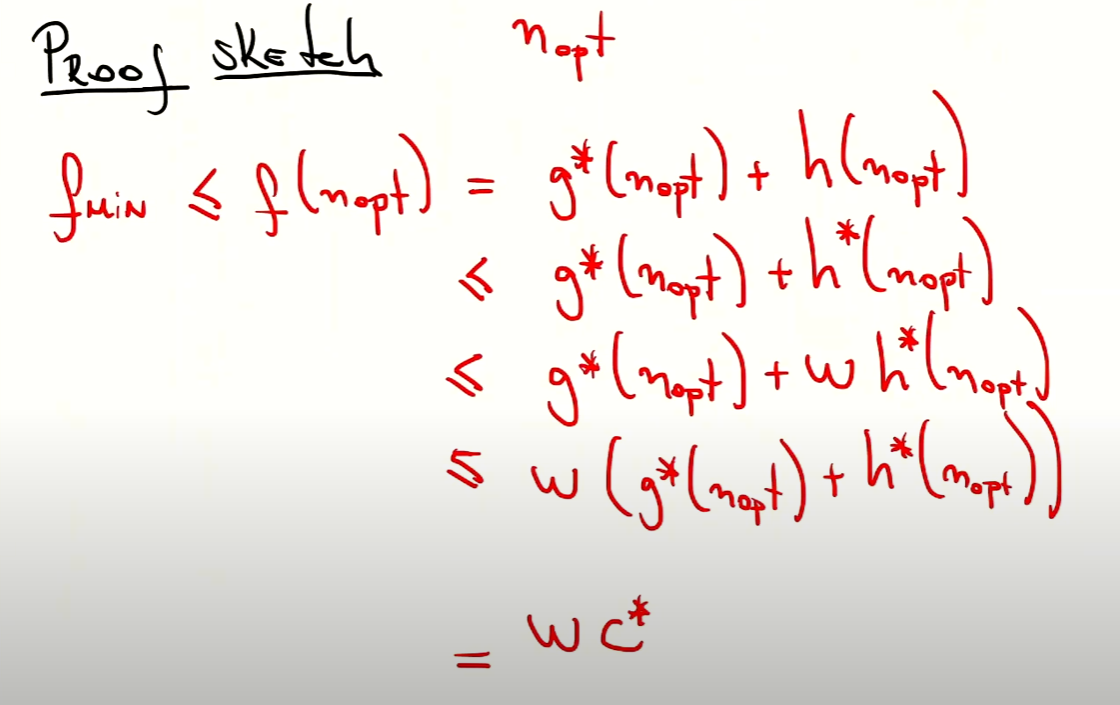 Proof sketch
n_opt
f_MIN ≤ f(n_opt) = g*(n_opt) + h(n_opt)
≤ g*(n_opt) + h*(n_opt)
≤ g*(n_opt) + w h*(n_opt)
≤ w (g*(n_opt) + h*(n_opt))
= w c*